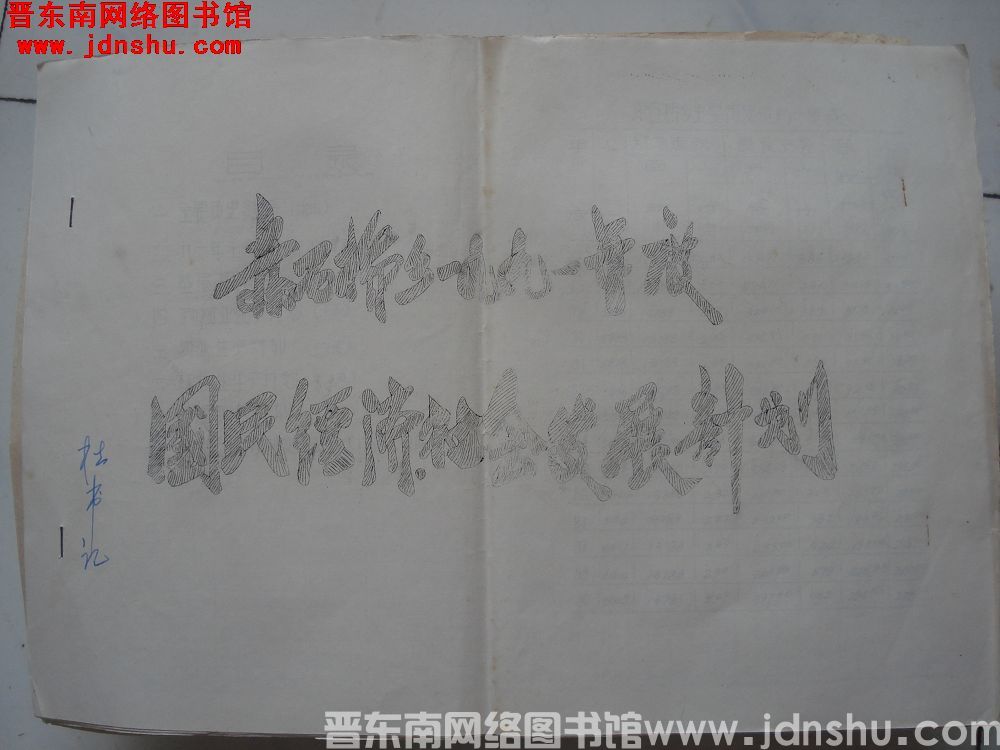 晋东南网络图书馆
www.jdnshu.com
赤石桥乡一九九一年度
国民经济、社会发展计划
杜书记
晋东南网络图书馆www.jdnshu.com